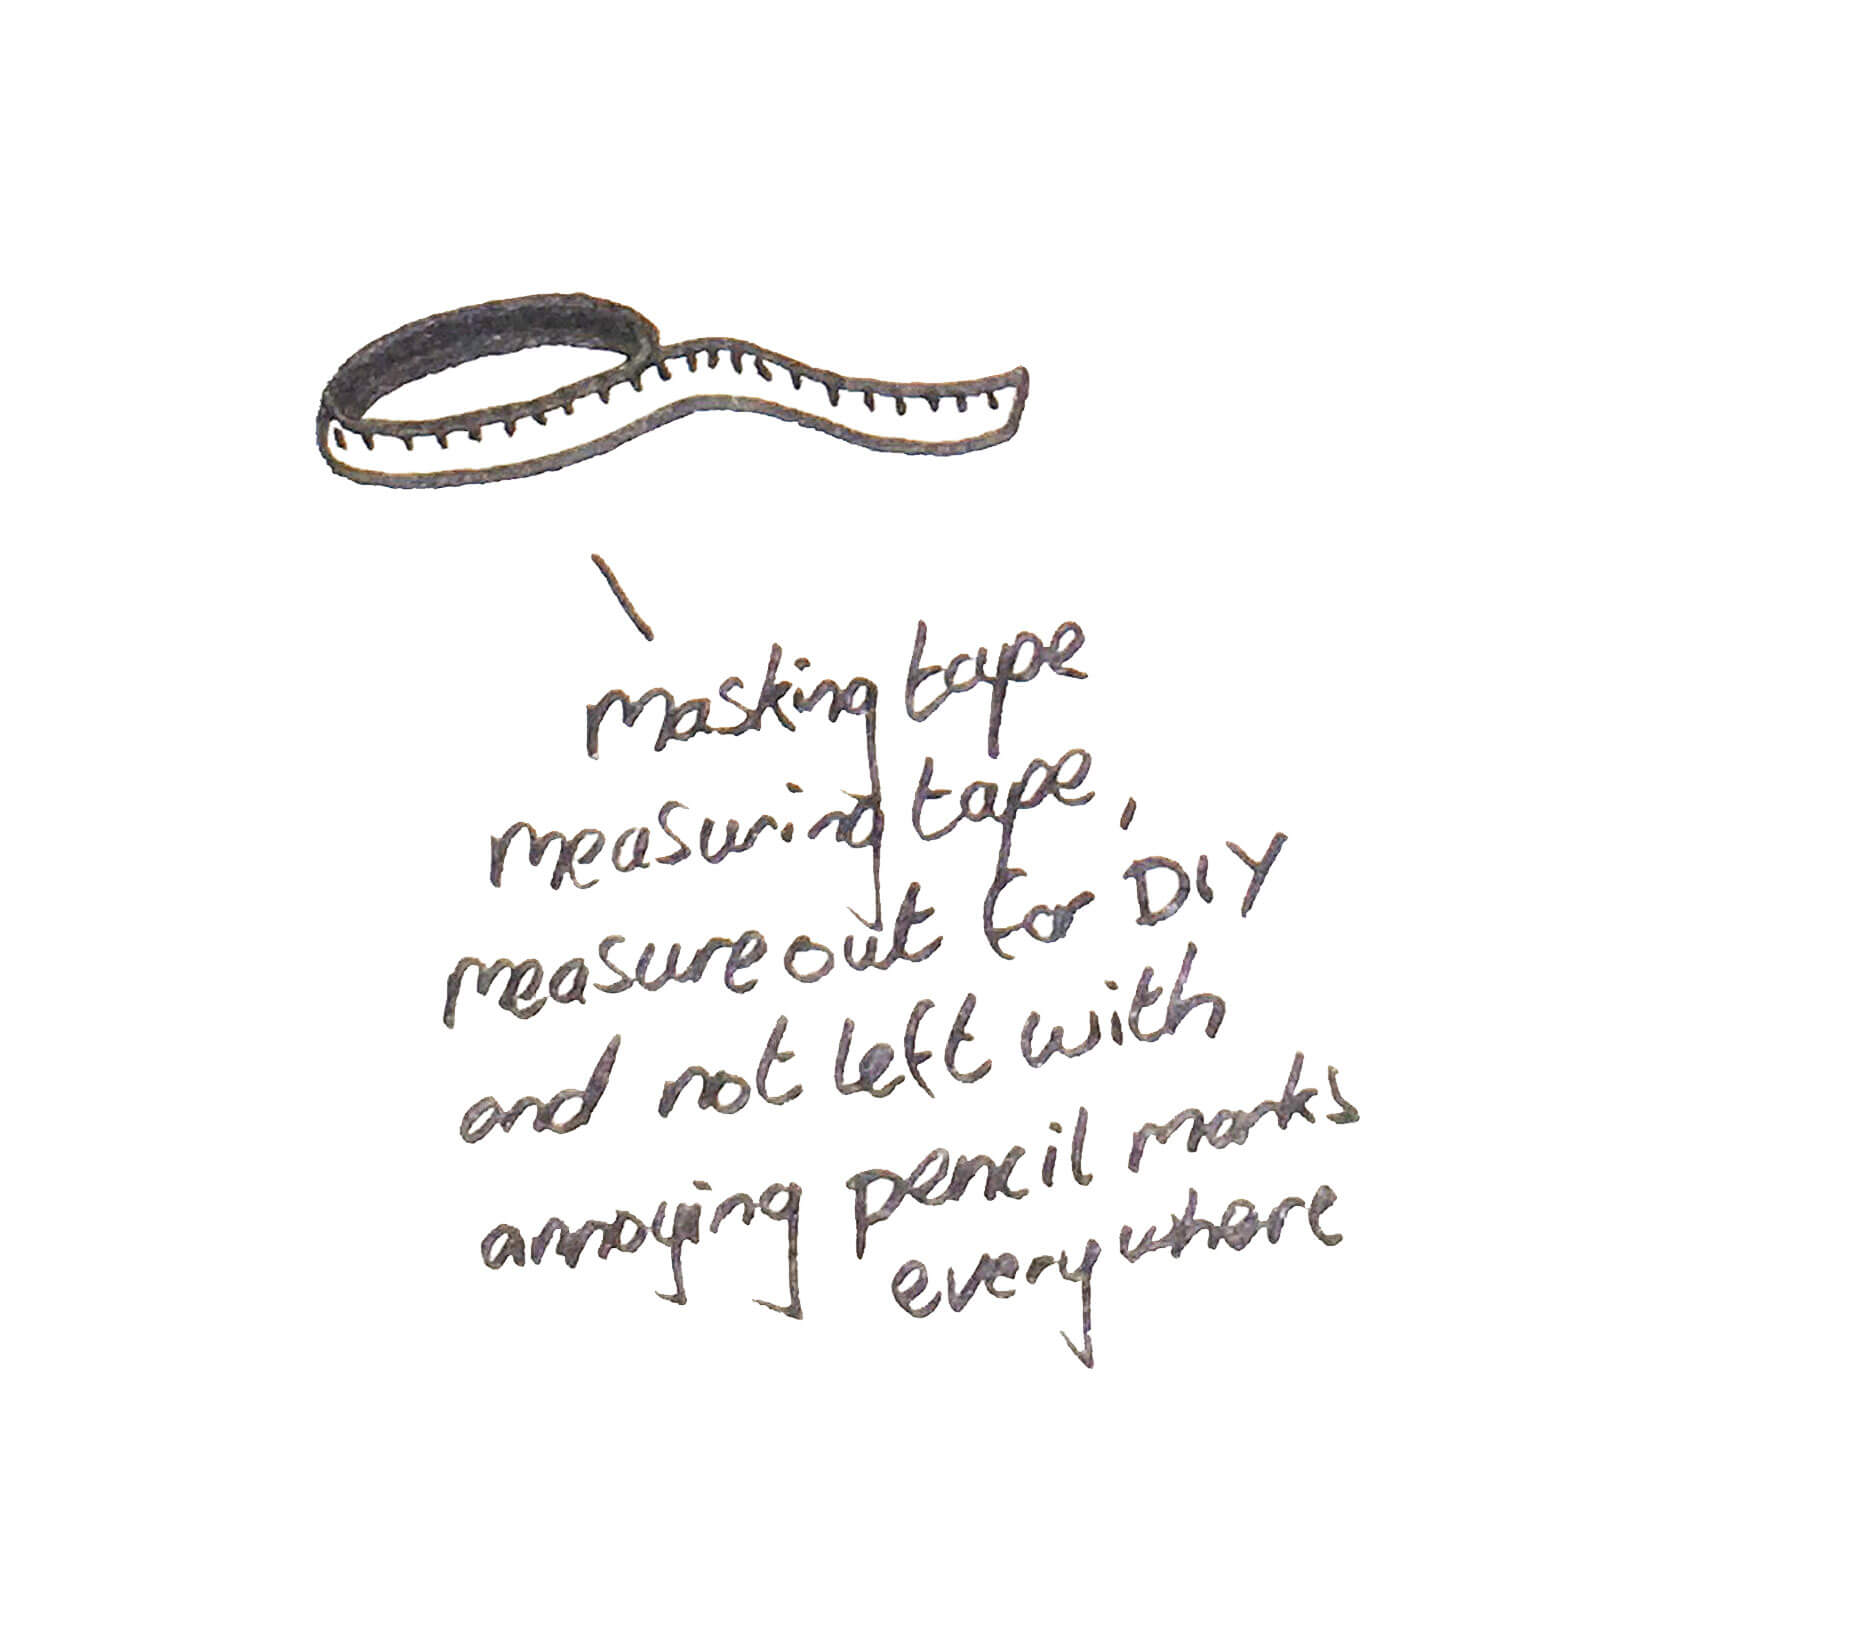 masking tape
measuring tape,
measure out for DIY
and not left with
annoying pencil marks
everywhere